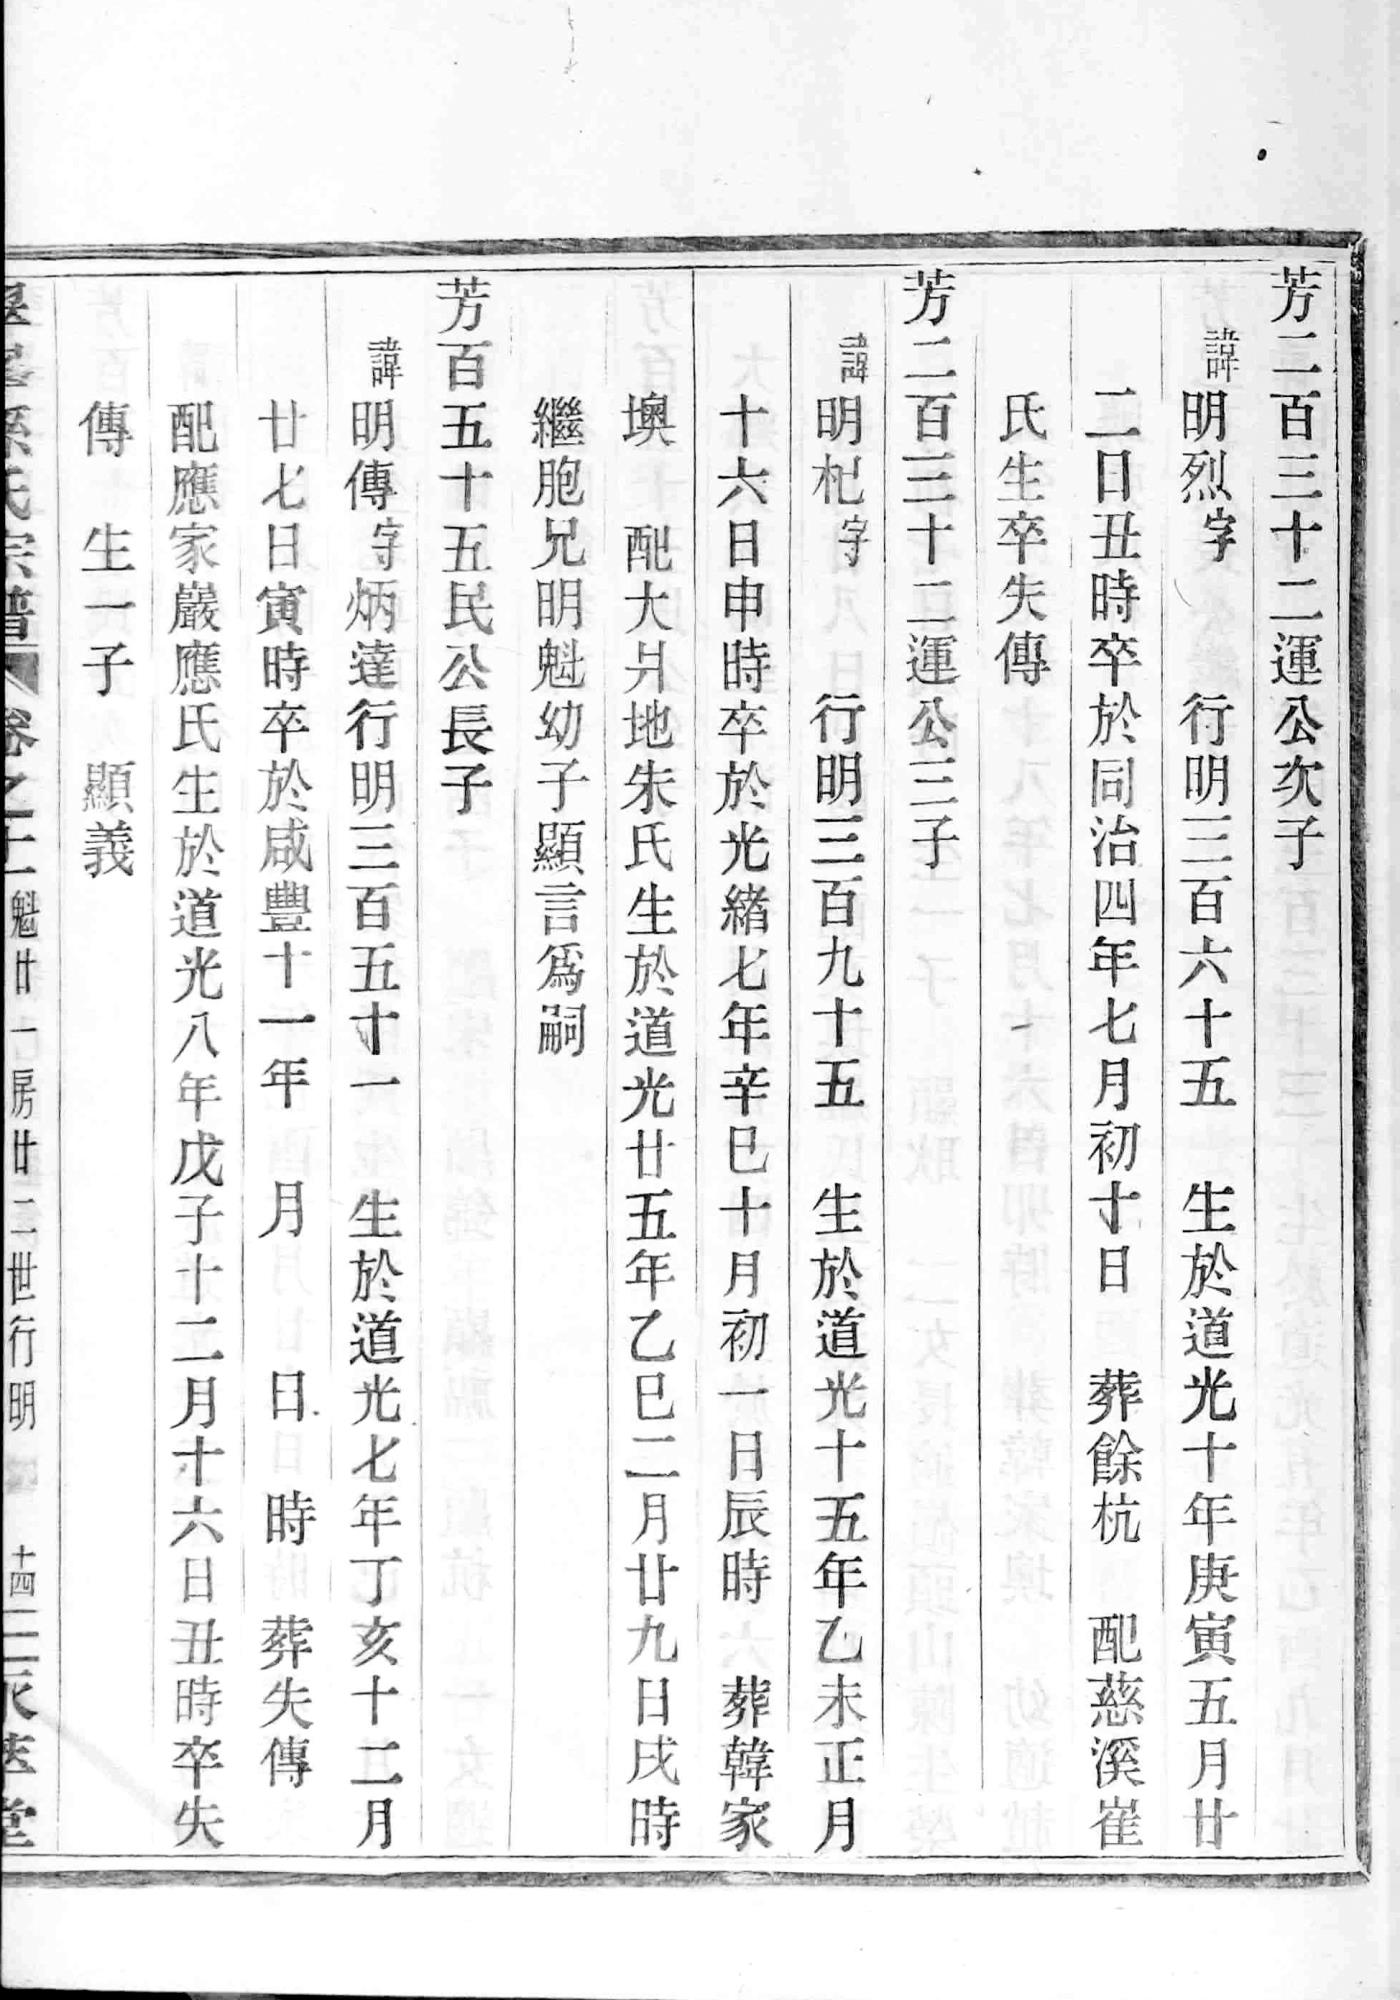 芳二百三十二運公次子
諱明烈字　行明三百六十五　生於道光十年庚寅五月廿
二日丑時卒於同治四年七月初十日　葬餘杭　配慈溪崔
氏生卒失傳
芳二百三十二運公三子
諱明杞字　行明三百九十五　生於道光十五年乙未正月
十六日申時卒於光緒七年辛巳十月初一日辰時　葬韓家
墺　配大爿地朱氏生於道光廿五年乙巳二月廿九日戌時
繼胞兄明魁幼子顯言爲嗣
芳百五十五民公長子
諱明傳字炳達行明三百五十一　生於道光七年丁亥十二月
廿七日寅時卒於咸豐十一年　月　日　時　葬失傳
配應家巖應氏生於道光八年戊子十二月十六日丑時卒失
傳　生一子　顯義
氏宗譜　卷之十二　魁廿一房廿二世行明　十四　堂